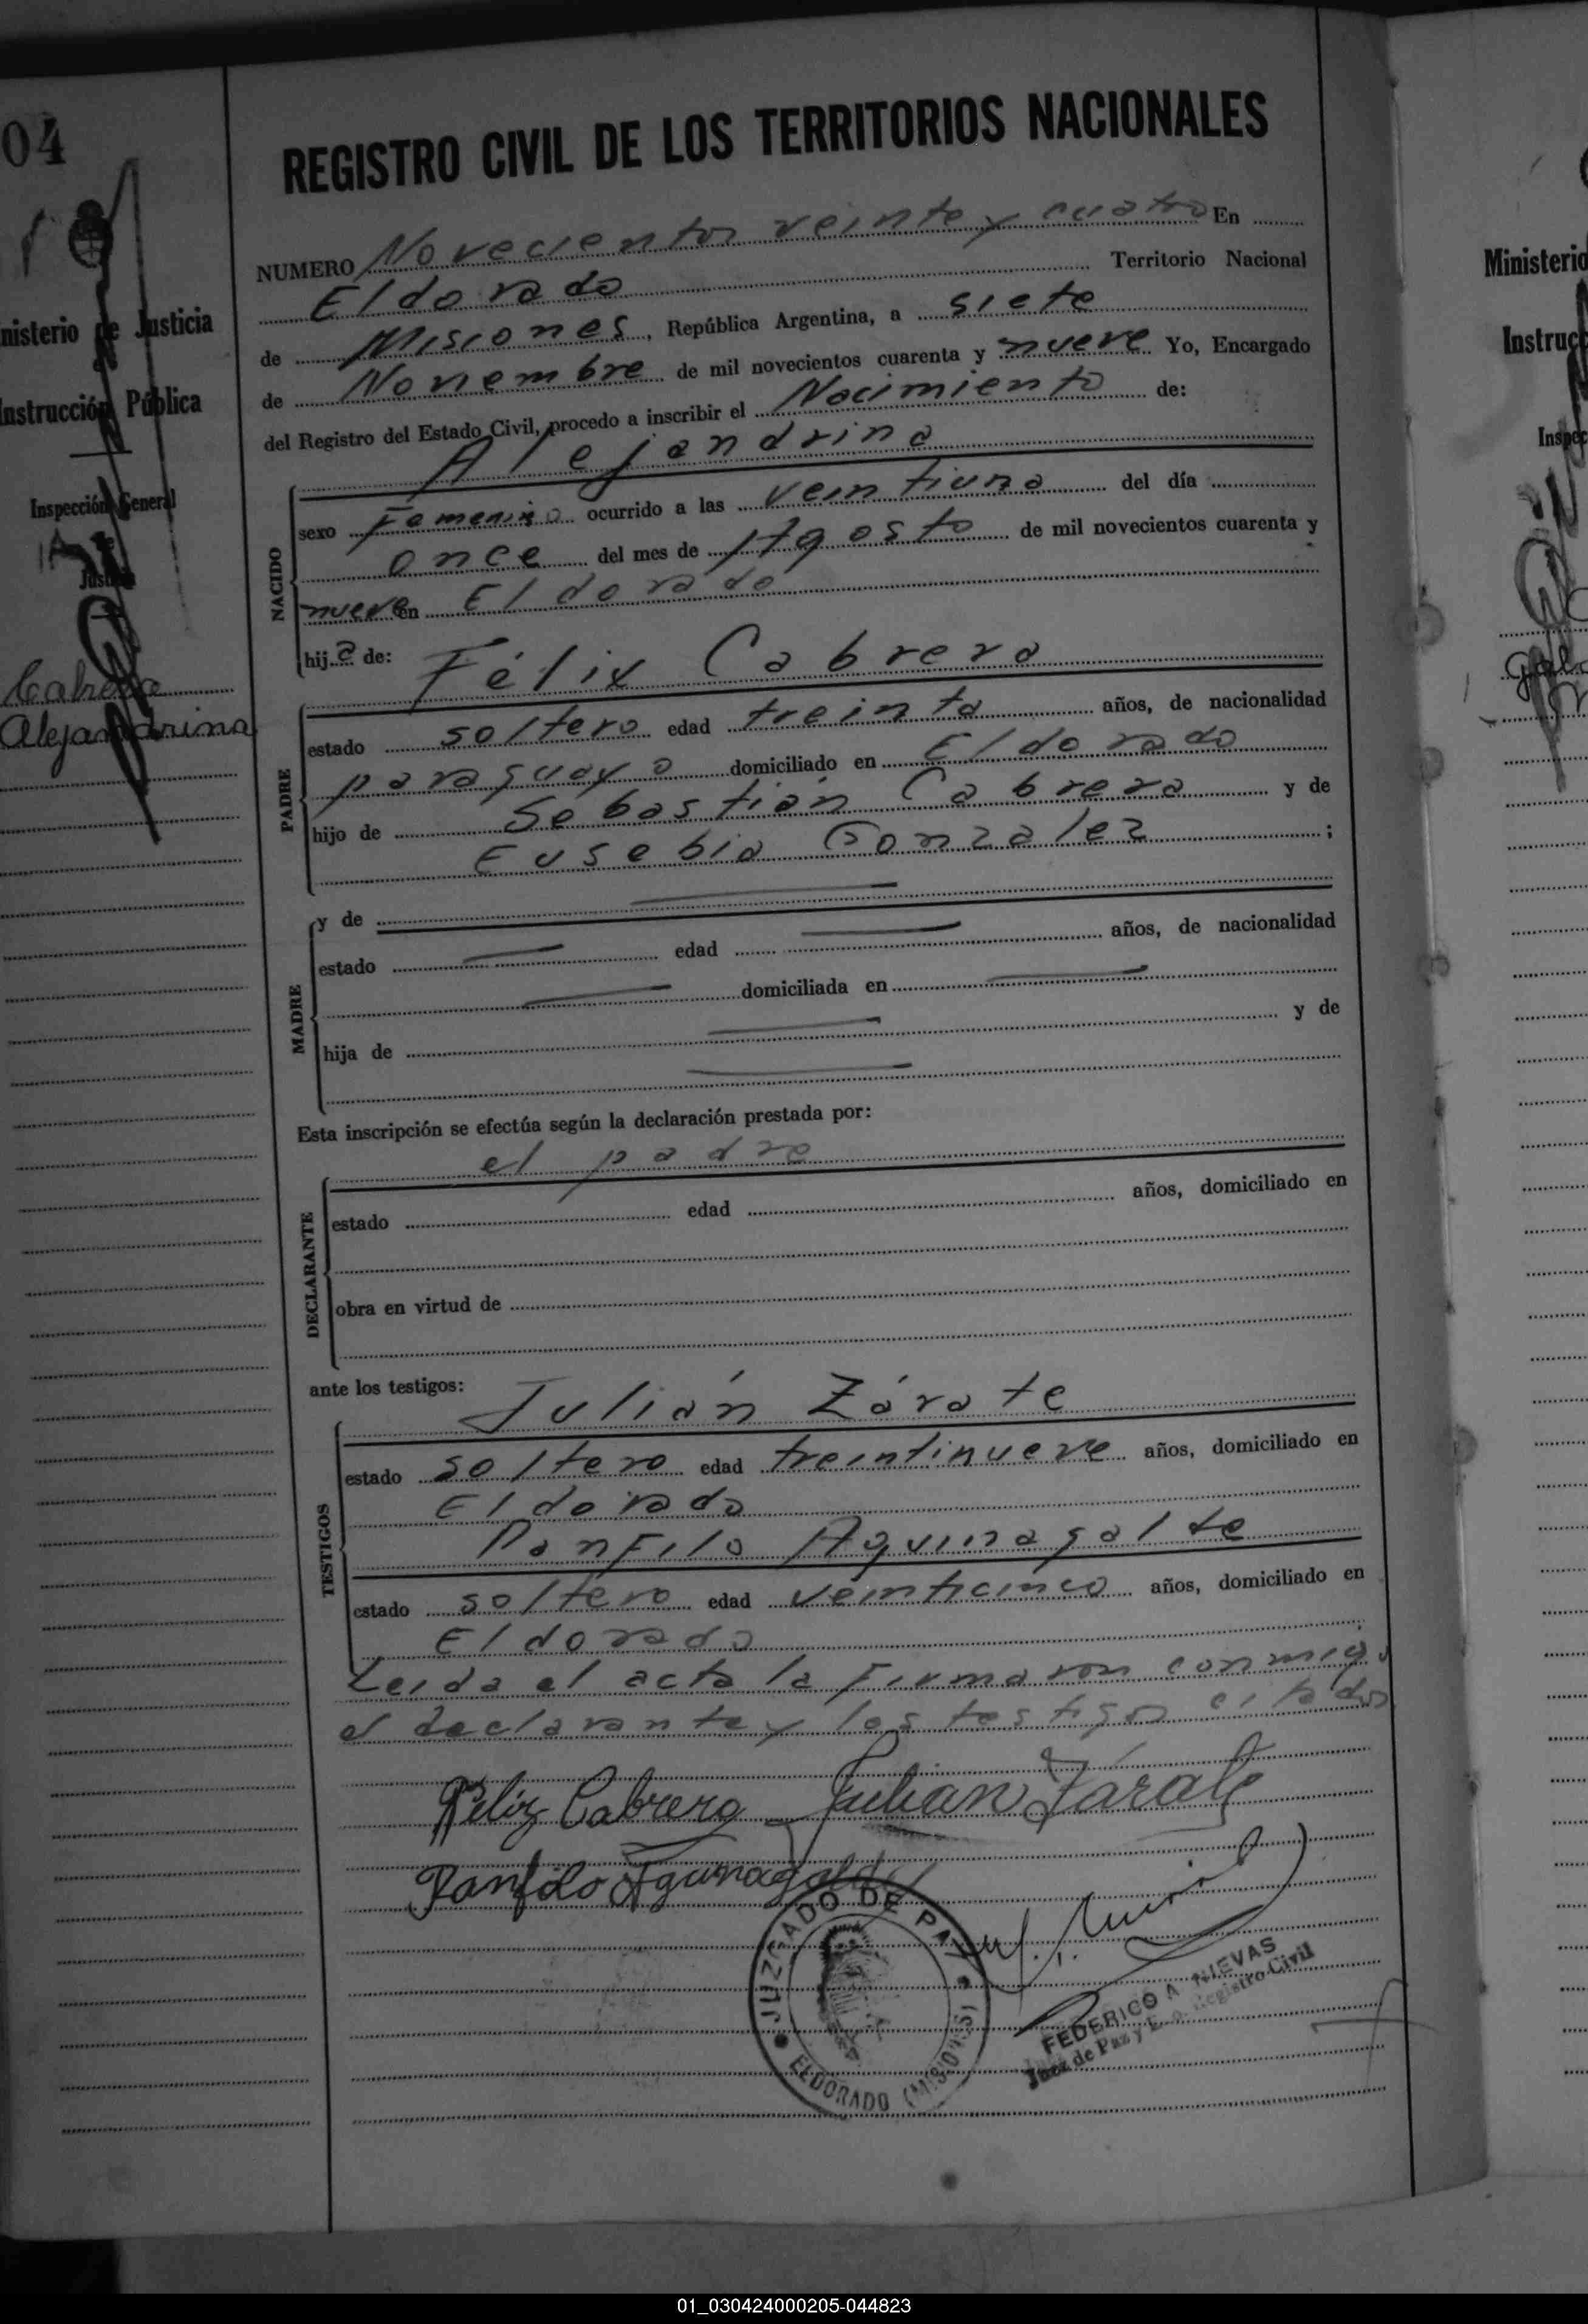 04
REGISTRO CIVIL DE LOS TERRITORIOS NACIONALES
NUMERO Novecientos veinte y cuatro En
Eldorado Territorio Nacional
de Misiones, República Argentina, a siete
de Noviembre de mil novecientos cuarenta y nueve Yo, Encargado
del Registro del Estado Civil, procedo a inscribir el Nacimiento de:
Alejandrina
NACIDO
sexo Femenino ocurrido a las veintiuna del día
once del mes de Agosto de mil novecientos cuarenta y
nueve en Eldorado
hija de:
Félix Cabrera
PADRE
estado soltero edad treinta años, de nacionalidad
paraguayo domiciliado en Eldorado
hijo de Sebastián Cabrera y de
Eusebia Gonzalez ;
MADRE
y de
estado edad años, de nacionalidad
domiciliada en
hija de y de
Esta inscripción se efectúa según la declaración prestada por:
el padre
DECLARANTE
estado edad años, domiciliado en
obra en virtud de
ante los testigos:
Julián Zárate
TESTIGOS
estado soltero edad treintinueve años, domiciliado en
Eldorado
Panfilo Aguinagalde
estado soltero edad veinticinco años, domiciliado en
Eldorado
Leida el acta la Firmaron conmigo
el declarante y los testigos citados
Feliz Cabrera Julian Zárate
Panfilo Aguinagalde
JUZGADO DE PAZ
ELDORADO (MISIONES)
FEDERICO A NIEVAS
Juez de Paz y Enc. Registro Civil
nisterio de Justicia
Instrucción Pública
Inspección General
de
Justicia
Cabrera
Alejandrina
Ministerio
Instruc
Inspec
01_030424000205-044823